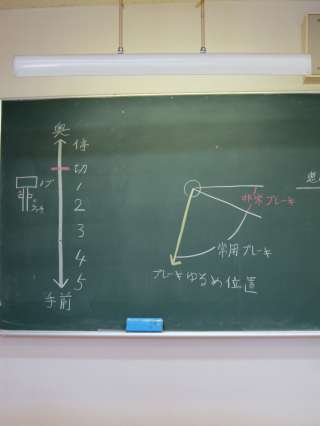 奥
停
切
1
2
3
4
5
手前
非常ブレーキ
常用ブレーキ
ブレーキゆるめ位置